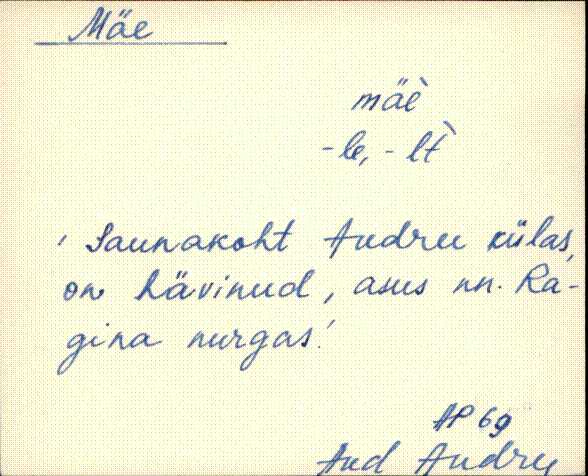 Mäe
mäè
-le, -lt̀
'Saunakoht Audru külas,
on hävinud, asus nn. Ra-
gina nurgas.'
AP 69
Aud Audru